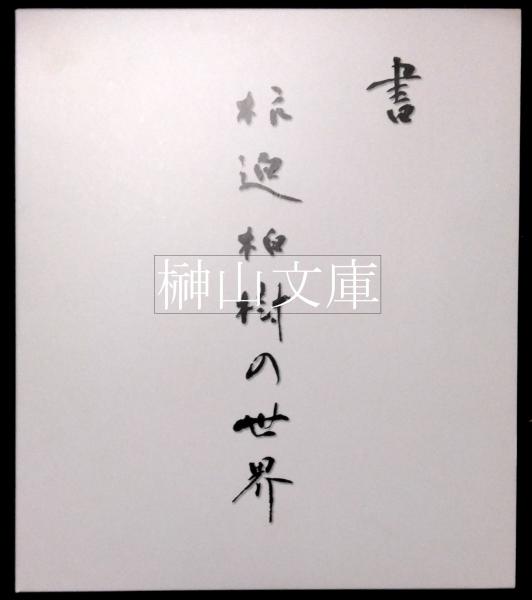 書
杭迫柏樹の世界
榊山文庫